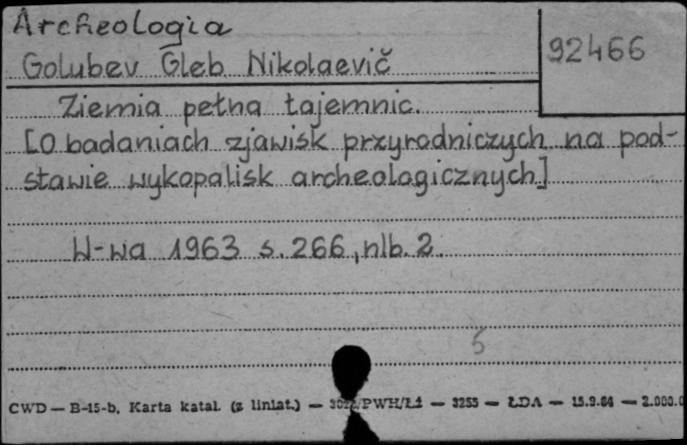 Archeologia
Golubev Gleb Nikolaevič
92466
Ziemia pełna tajemnic.
[O badaniach zjawisk przyrodniczych na pod-
stawie wykopalisk archeologicznych]
W-wa 1963 s. 266, nlb. 2.
5
CWD — B-15-b. Karta katal. (z liniat.) — /PWH/Ł1 — 3255 — ŁDA — 15.9.64 — 2.000.0